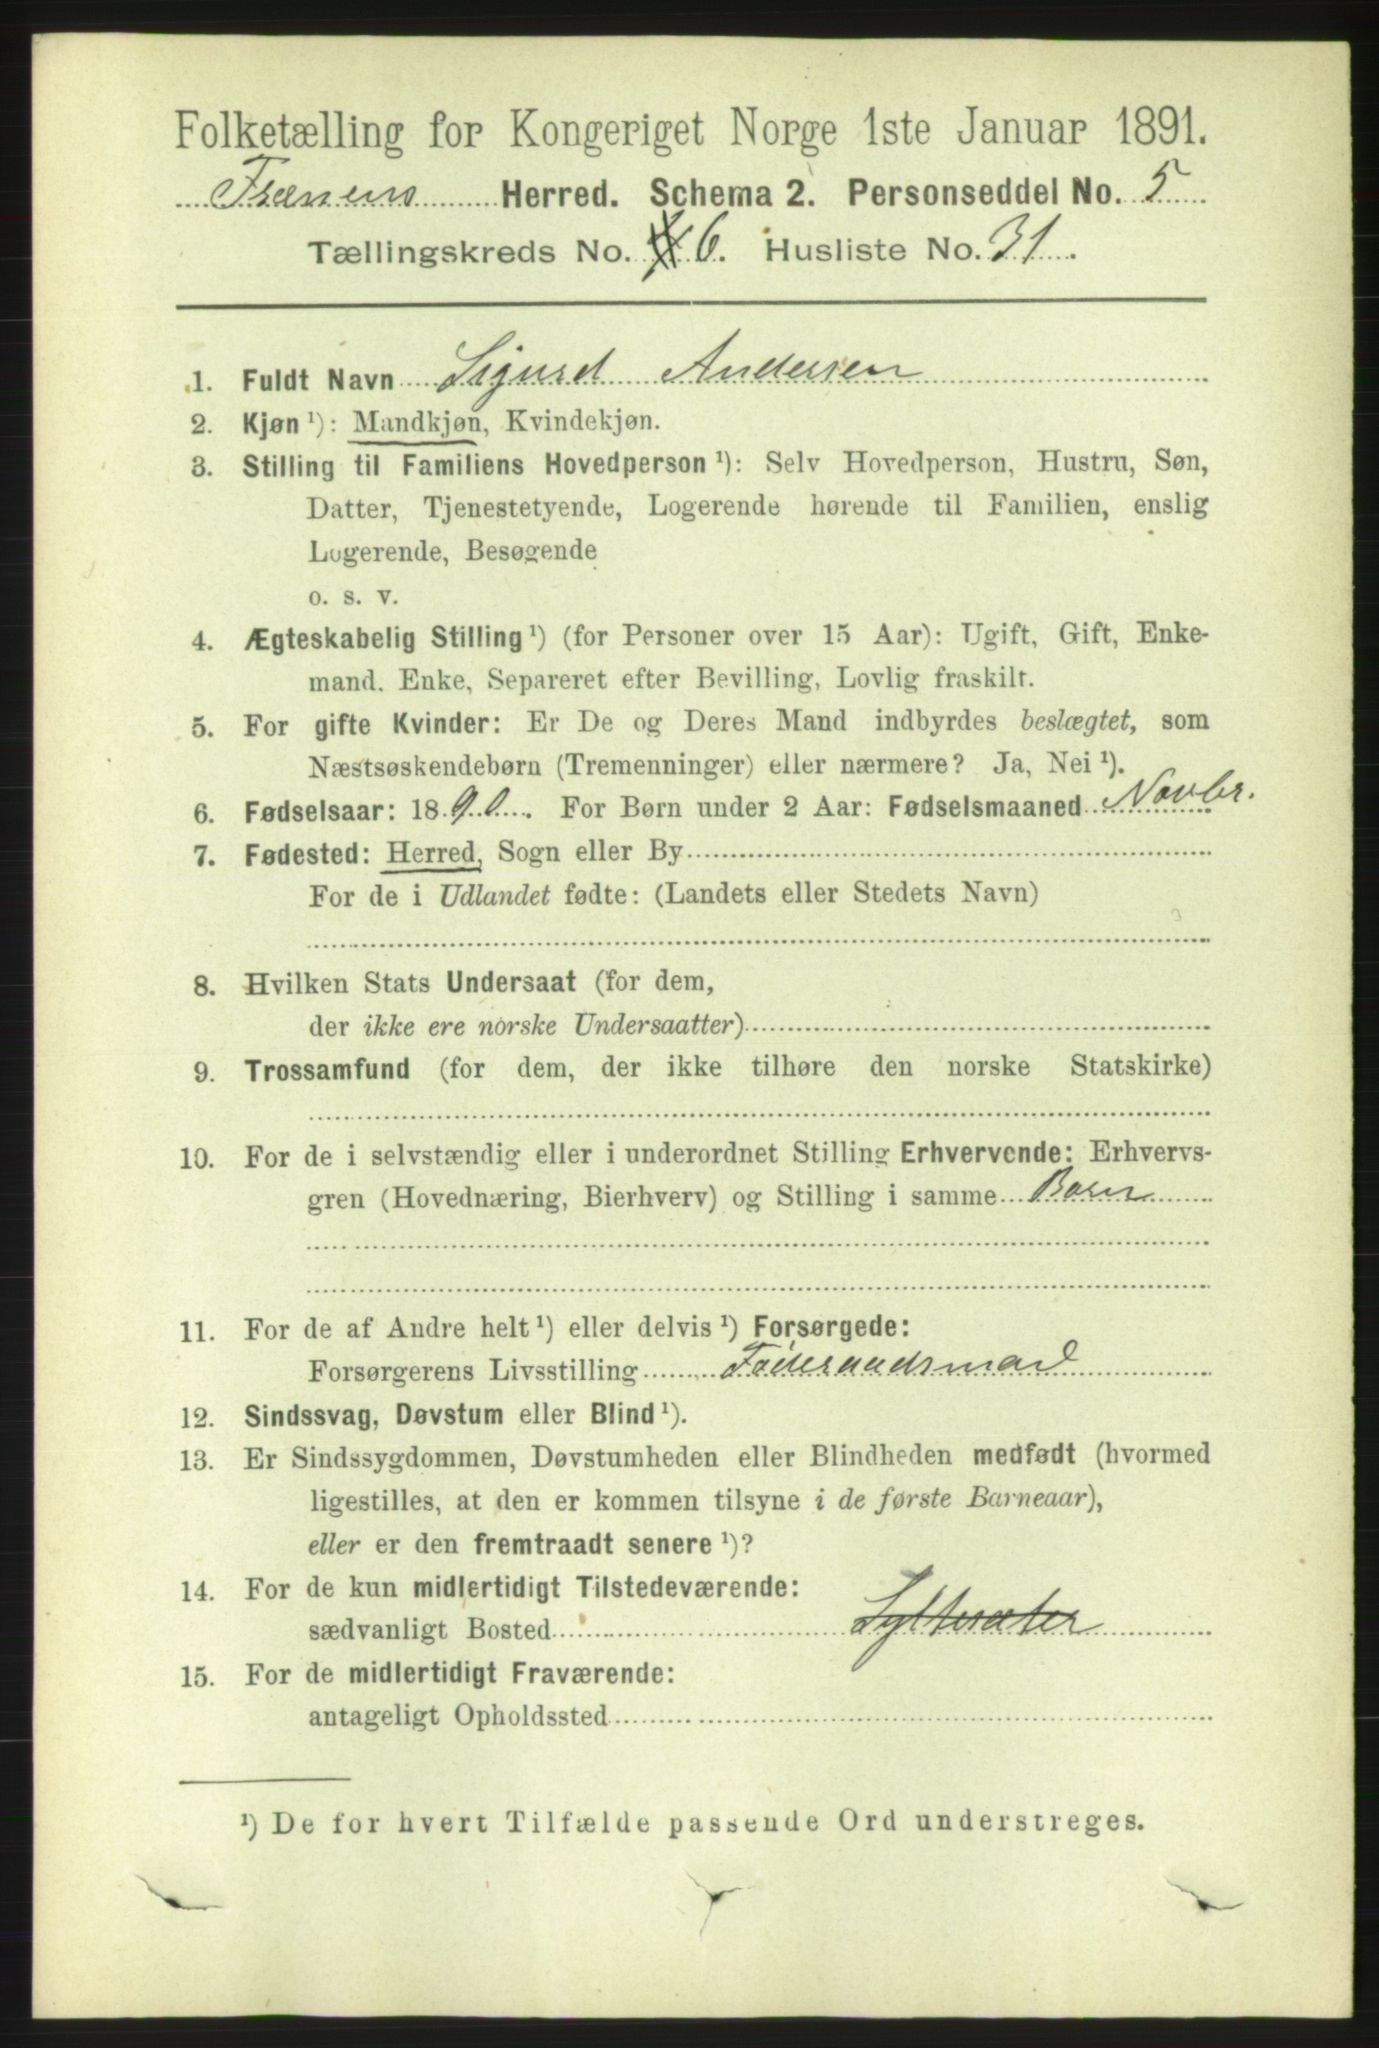 Folketælling for Kongeriget Norge 1ste Januar 1891.
Frænens Herred. Schema 2. Personseddel No. 5
Tællingskreds No. 6. Husliste No. 31.
1. Fuldt Navn Sigurd Andersen
2. Kjøn ¹): Mandkjøn, Kvindekjøn.
3. Stilling til Familiens Hovedperson ¹): Selv Hovedperson, Hustru, Søn,
Datter, Tjenestetyende, Logerende hørende til Familien, enslig
Logerende, Besøgende
o. s. v.
4. Ægteskabelig Stilling ¹) (for Personer over 15 Aar): Ugift, Gift, Enke-
mand. Enke, Separeret efter Bevilling, Lovlig fraskilt.
5. For gifte Kvinder: Er De og Deres Mand indbyrdes beslægtet, som
Næstsøskendebørn (Tremenninger) eller nærmere? Ja, Nei ¹).
6. Fødselsaar: 1890. For Børn under 2 Aar: Fødselsmaaned Novbr.
7. Fødested: Herred, Sogn eller By
For de i Udlandet fødte: (Landets eller Stedets Navn)
8. Hvilken Stats Undersaat (for dem,
der ikke ere norske Undersaatter)
9. Trossamfund (for dem, der ikke tilhøre den norske Statskirke)
10. For de i selvstændig eller i underordnet Stilling Erhvervende: Erhvervs-
gren (Hovednæring, Bierhverv) og Stilling i samme Barn
11. For de af Andre helt ¹) eller delvis ¹) Forsørgede:
Forsørgerens Livsstilling Føderaadsmand
12. Sindssvag, Døvstum eller Blind ¹).
13. Er Sindssygdommen, Døvstumheden eller Blindheden medfødt (hvormed
ligestilles, at den er kommen tilsyne i de første Barneaar),
eller er den fremtraadt senere ¹)?
14. For de kun midlertidigt Tilstedeværende:
sædvanligt Bosted Syltesæter
15. For de midlertidigt Fraværende:
antageligt Opholdssted
¹) De for hvert Tilfælde passende Ord understreges.